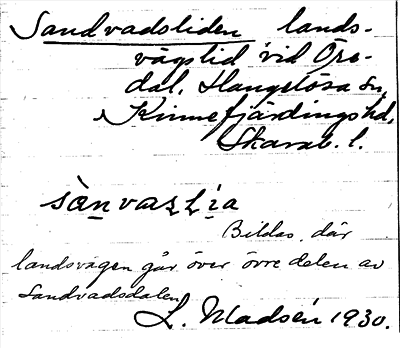 Sandvadsliden lands-
vägslid vid Öre-
dal, Hangelösa sn,
Kinnefjärdings hd,
Skarab. l.
Bildas, där
landsvägen går över övre delen av
Sandvadsdalen
L. Madsén 1930.